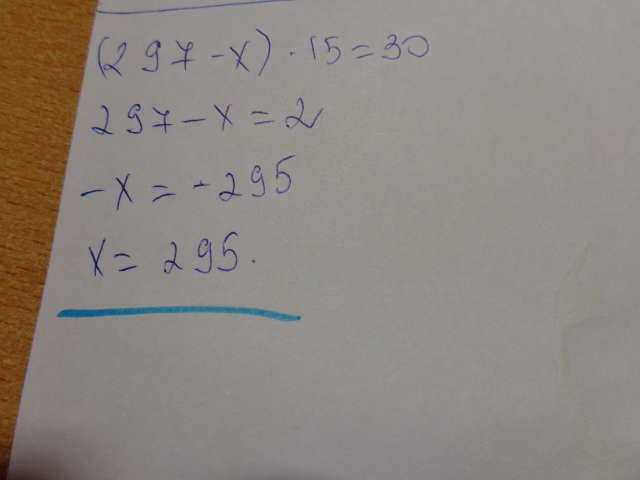 (297-x)·15=30
297-x=2
-x=-295
x=295.